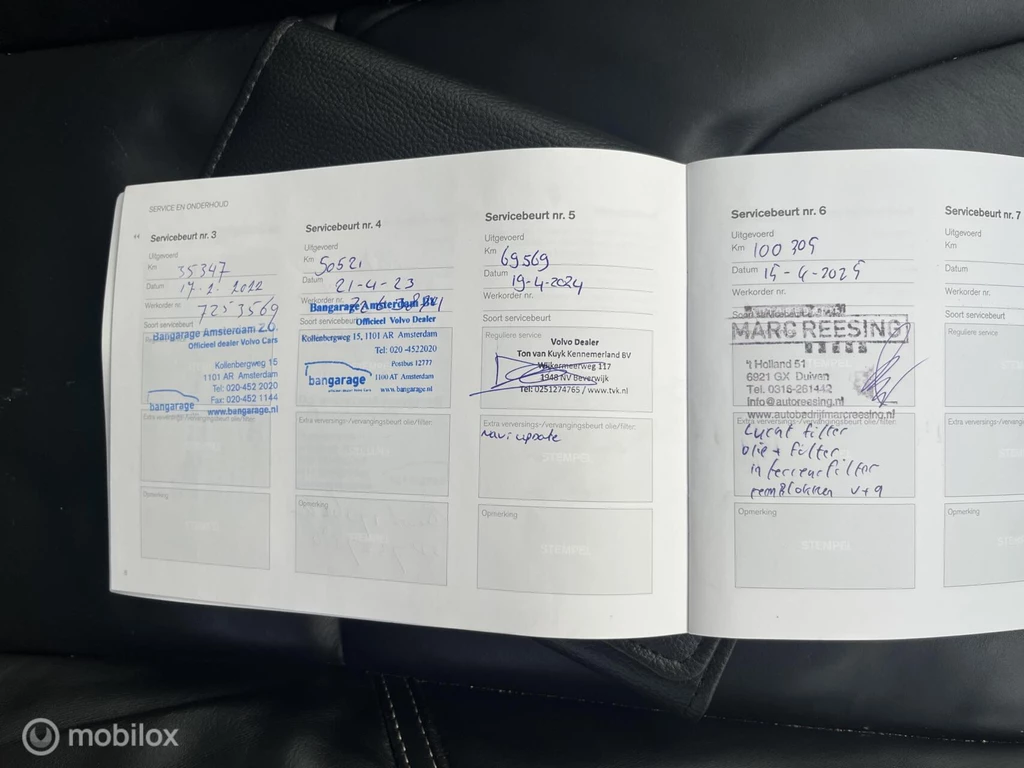 SERVICE EN ONDERHOUD
Servicebeurt nr. 3
Uitgevoerd
Km 35347
Datum 17-2-2022
Werkorder nr. 7253569
Soort servicebeurt
Bangarage Amsterdam Z.O.
Officieel dealer Volvo Cars
Kollenbergweg 15
1101 AR Amsterdam
Tel: 020-452 2020
Fax: 020-452 1144
www.bangarage.nl
bangarage
Extra verversings-/vervangingsbeurt olie/filter:
Opmerking
Servicebeurt nr. 4
Uitgevoerd
Km 50521
Datum 21-4-23
Werkorder nr.
Bangarage Amsterdam
Soort servicebeurt
Officieel Volvo Dealer
Kollenbergweg 15, 1101 AR Amsterdam
Tel: 020-4522020
Postbus 12777
1100 AT Amsterdam
www.bangarage.nl
bangarage
Extra verversings-/vervangingsbeurt olie/filter:
Opmerking
Servicebeurt nr. 5
Uitgevoerd
Km 69569
Datum 19-4-2024
Werkorder nr.
Soort servicebeurt
Reguliere service
Volvo Dealer
Ton van Kuyk Kennemerland BV
Wijkermeerweg 117
1948 NV Beverwijk
Tel: 0251274765 / www.tvk.nl
Extra verversings-/vervangingsbeurt olie/filter:
Navi update
STEMPEL
Opmerking
STEMPEL
Servicebeurt nr. 6
Uitgevoerd
Km 100309
Datum 15-4-2025
Werkorder nr.
Soort
MARC REESING
't Holland 51
6921 GX Duiven
Tel. 0318-261442
info@autoreesing.nl
www.autobedrijfmarcreesing.nl
Extra verversings-/vervangingsbeurt olie/filter:
Lucht filter
olie + filter
filter
remblokken v+a
Opmerking
STEMPEL
Servicebeurt nr. 7
Uitgevoerd
Km
Datum
Werkorder nr.
Soort servicebeurt
Reguliere service
Opmerking
mobilox